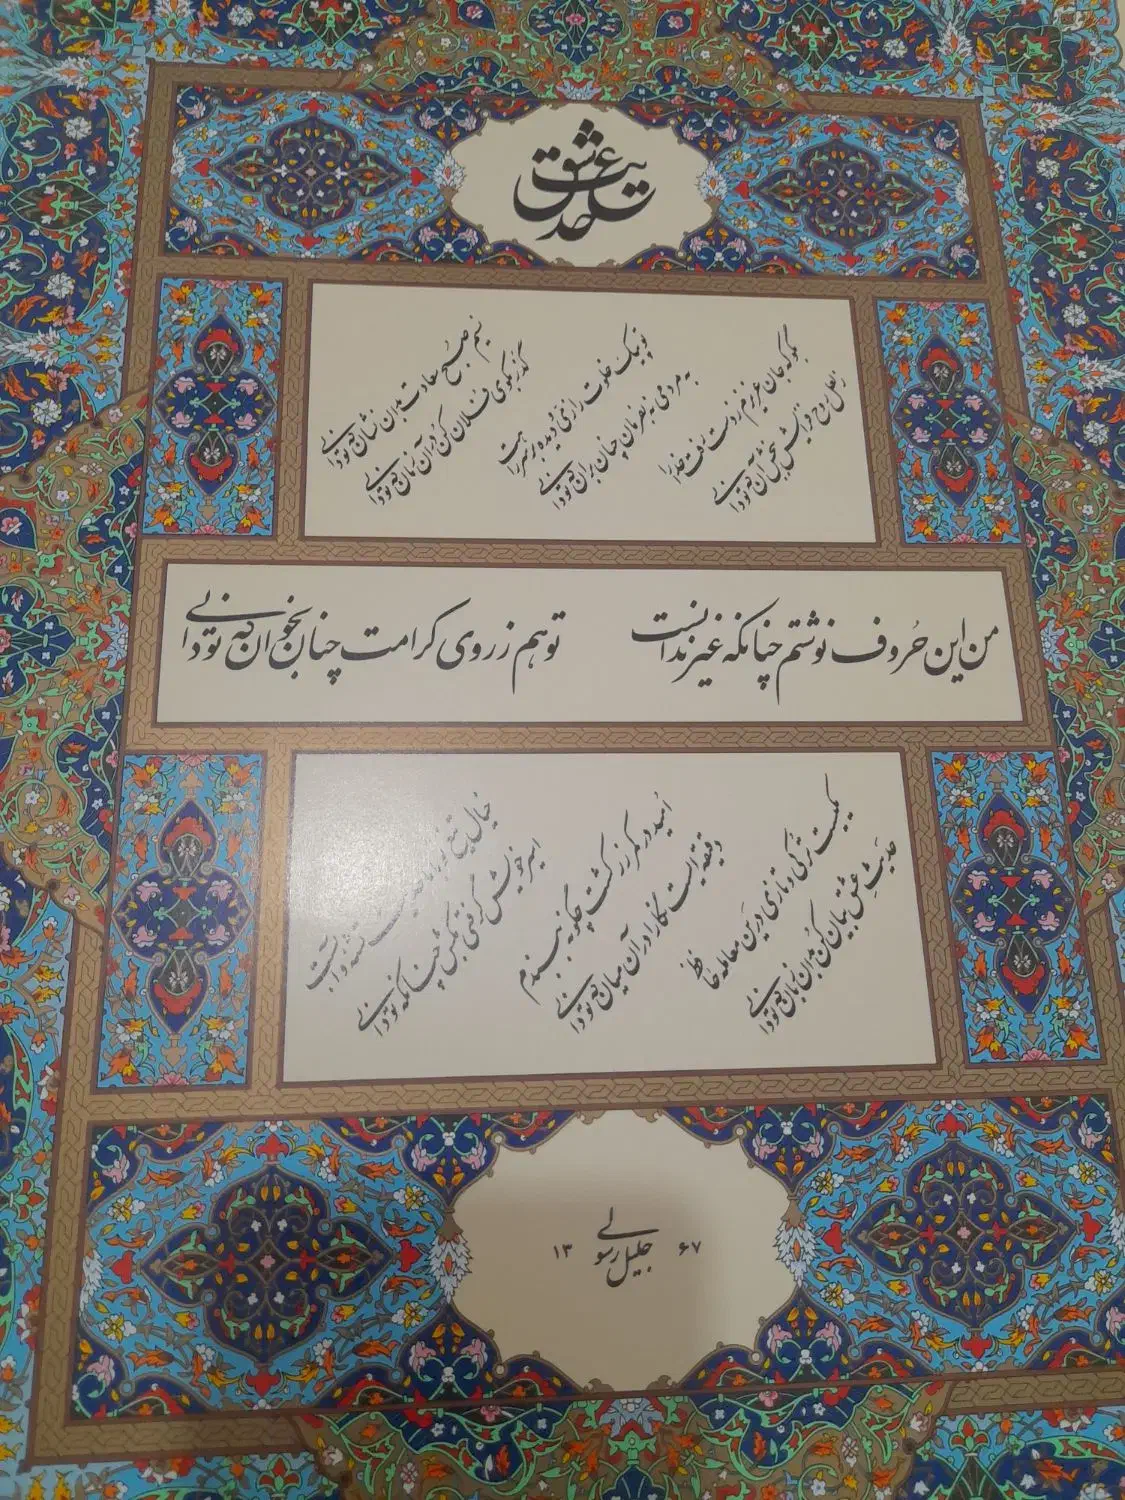 حدیث عشق
نسیم صبح سعادت بدان نشان که تو دانی
گذر بکوی فلان کن در آن زمان که تو دانی
تو پیک خلوت رازی و دیده بر سر راهت
به مردمی نه بفرمان چنان بران که تو دانی
بگو که جان عزیزم ز دست رفت خدا را
ز لعل روح فزایش ببخش آن که تو دانی
من این حروف نوشتم چنانکه غیر ندانست
تو هم ز روی کرامت چنان بخوان که تو دانی
خیال تیغ تو با ما حدیث تشنه و آبست
اسیر خویش گرفتی بکش چنانکه تو دانی
امید در کمر زرکشت چگونه ببندم
دقیقه ایست نگارا در آن میان که تو دانی
یکیست ترکی و تازی درین معامله حافظ
حدیث عشق بیان کن بدان زبان که تو دانی
جلیل رسولی
۱۳ ۶۷